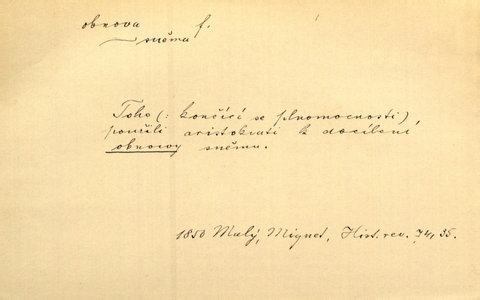 obnova f.
sněmu
Toho (: končící se plnomocnosti)
použili aristokrati k docílení
obnovy sněmu.
1850 Malý, Mignet, Hist. rev. 74, 35.